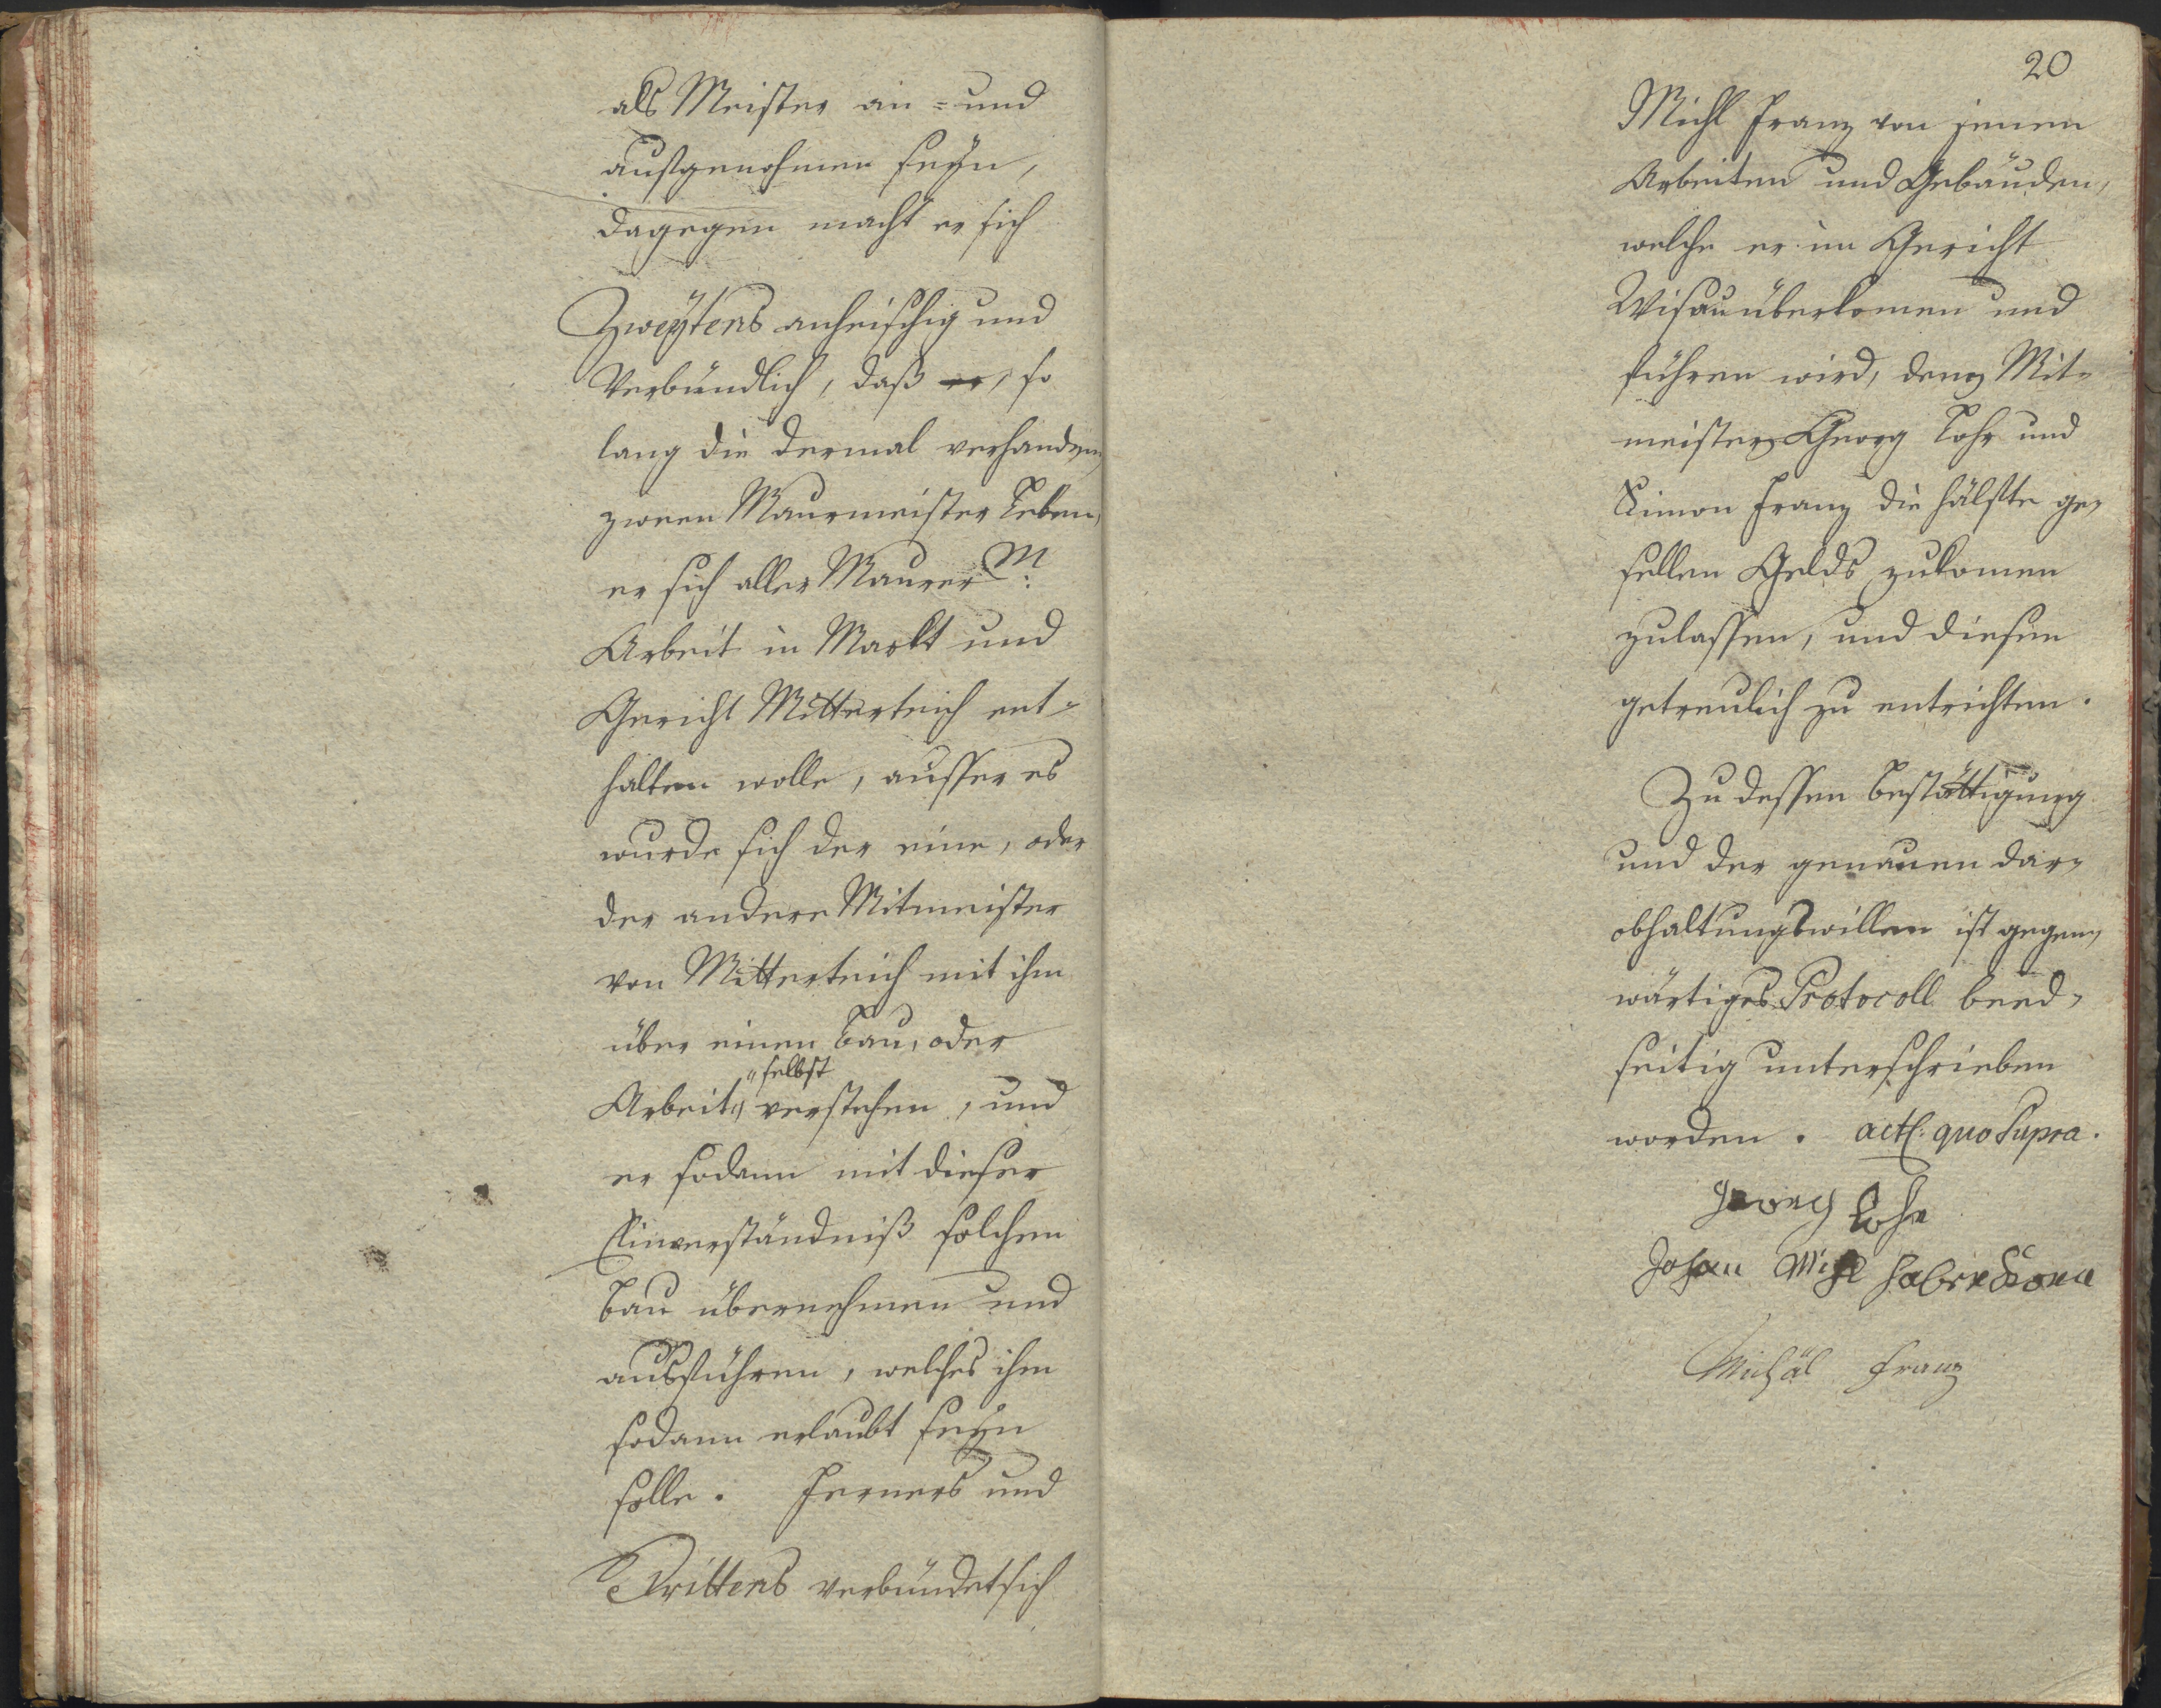 als Meister ein = und
aufgenohmen seÿn,
dagegen macht er sich
Zweÿtens anheischig und
Verbündlich, daß er, so
lang die dermal verhanden
zween Maurmeister Leben,
er sich aller Maurer M:
Arbeit in Markt und
Gericht Mitterteich ent-
halten wolle, ausser es
wurde sich der eine, oder
der andere Mitmeister
von Mitterteich mit ihm
über einen Bau, oder
" selbst
Arbeit " verstehen, und
er sodann mit dieser
Einverständniß solchen
Bau übernehmen und
ausführen, welches ihm
sodann erlaubt seÿn
solle. Ferners und
Drittens verbündet sich
20
Michl Franz von jenen
Arbeiten und Gebäuden,
welche er im Gericht
Wisau überkomen und
führen wird, denen Mit-
meistern Georg Lohr und
Simon Franz die hälfte ge-
sellen Gelds zukomen
zulassen, und diesen
getreulich zu entrichten.
Zu dessen Bestättigung
und der genauen dar-
obhaltungswillen ist gegen-
wärtiges Protocoll beed-
seitig unterschrieben
worden. act: quo Supra.
Georg Lohr
Johan Michl
Michäl Franz